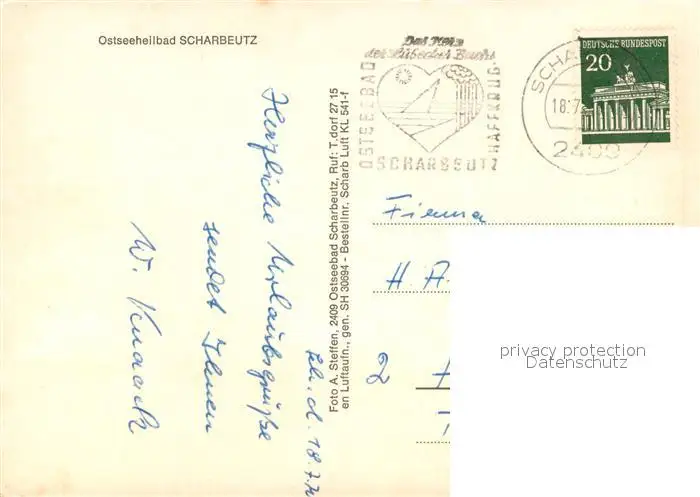 Ostseeheilbad SCHARBEUTZ
Herzliche Urlaubsgrüße
sendet Ihnen
W. Knaack
Sch. d. 18.7.7
Foto A. Steffen, 2409 Ostseebad Scharbeutz, Ruf: T.dorf 27 15
en Luftaufn., gen. SH 30694 - Bestellnr. Scharb Luft KL 541-f
Das Herz
der Lübecker Bucht
OSTSEEBAD
SCHARBEUTZ
HAFFKRUG
SCHA
18.7
2409
DEUTSCHE BUNDESPOST
20
Firma
H. A.
2
privacy protection
Datenschutz